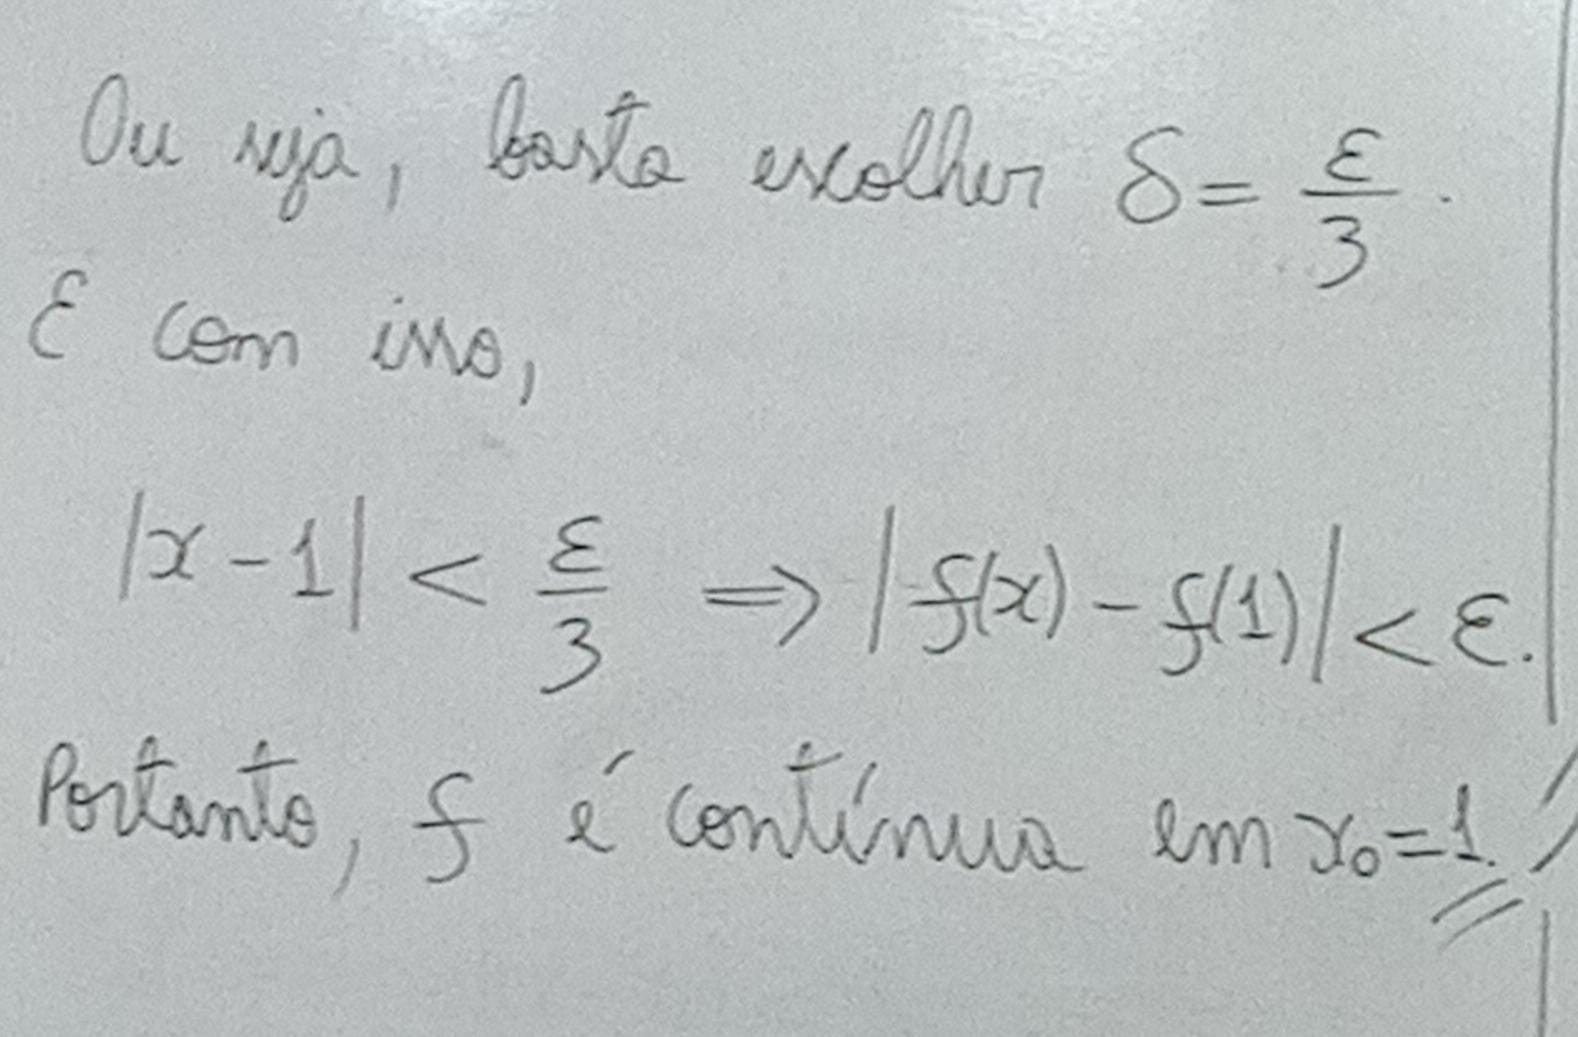 Ou seja, basta escolher δ = ε/3.
E com isso,
|x - 1| < ε/3 ⇒ |f(x) - f(1)| < ε.
Portanto, f é contínua em x₀=1.